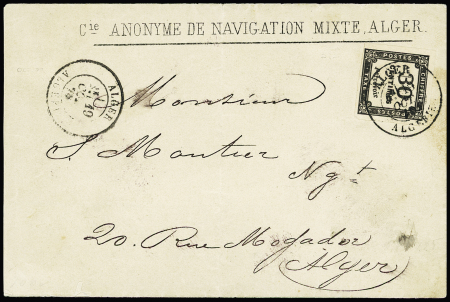 Cie ANONYME DE NAVIGATION MIXTE, ALGER.
CHIFFRE POSTES TAXE
30
ALGER
ALGERIE
Monsieur
S Moutier
Ngt
20. Rue Mogador
Alger